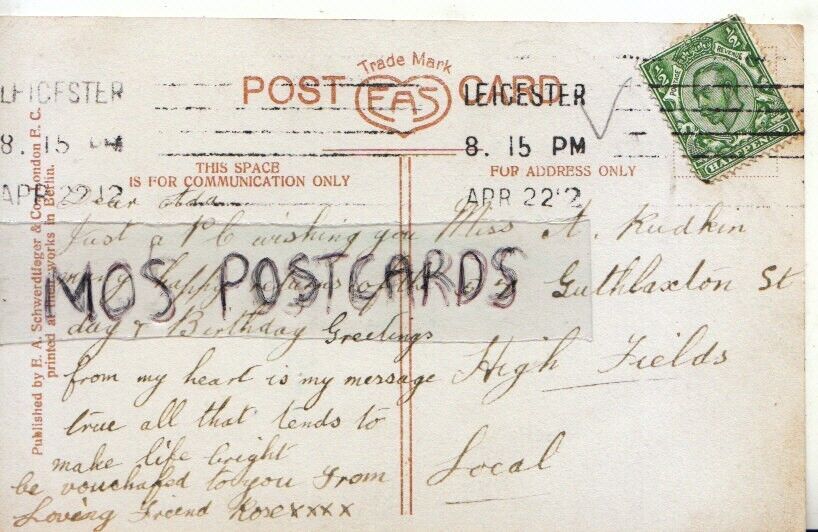 Trade Mark
POST EAS CARD
LEICESTER
8. 15 PM
APR 22 12
LEICESTER
8. 15 PM
APR 22 12
½ POSTAGE REVENUE ½
HALFPENNY
THIS SPACE
IS FOR COMMUNICATION ONLY
FOR ADDRESS ONLY
Published by E. A. Schwerdtfeger & Co., London E. C.
printed at their works in Berlin.
Dear Ada
Just a PC wishing you
many happy returns of the
day & Birthday Greetings
from my heart is my message
true all that tends to
make life bright
be vouchafed to you From
Loving Friend Rose xxxx
Miss A. Rudkin
Guthlaxton St
High Fields
Local
MOS POSTCARDS